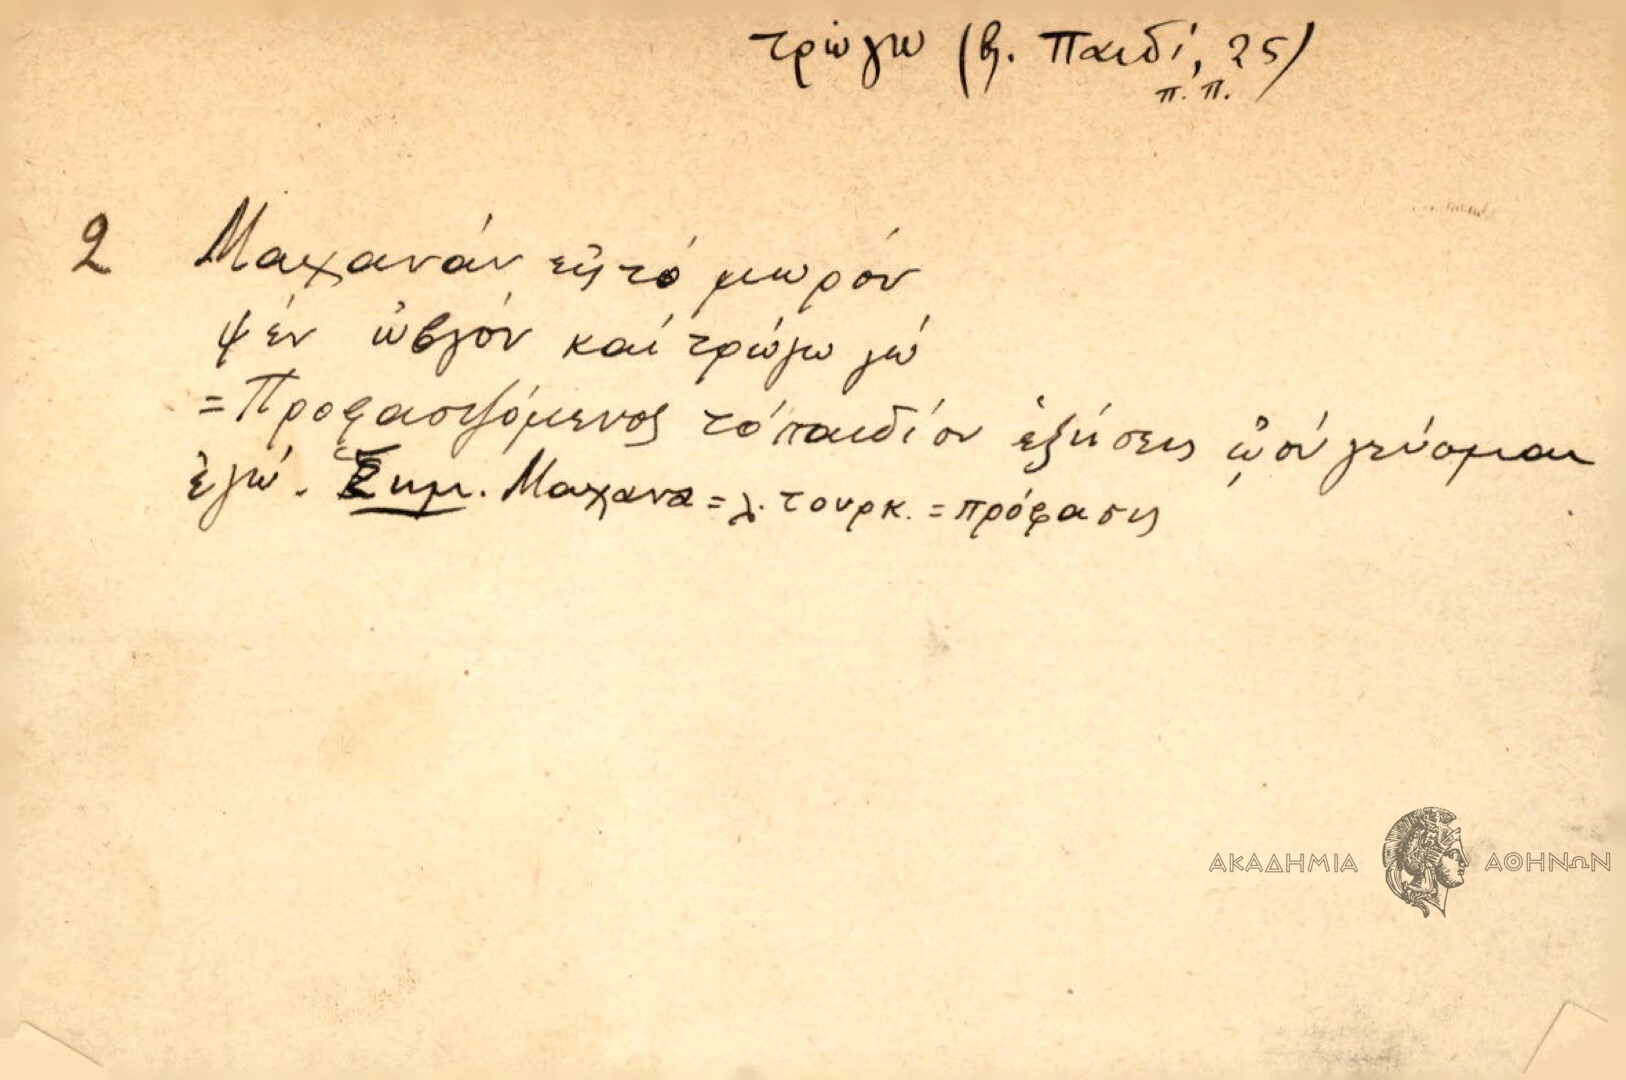 τρώγω (βλ. Παιδί, 25)
π.π.
2 Μαχανάν εις τό μωρόν
ψέν ὠβγόν καί τρώγω γώ
= Προφασιζόμενος τό παιδίον ἑψήσεις ᾠόν γεύομαι
ἐγώ. Σημ. Μαχανα = λ. τουρκ. = πρόφασις
ΑΚΑΔΗΜΙΑ ΑΘΗΝΩΝ